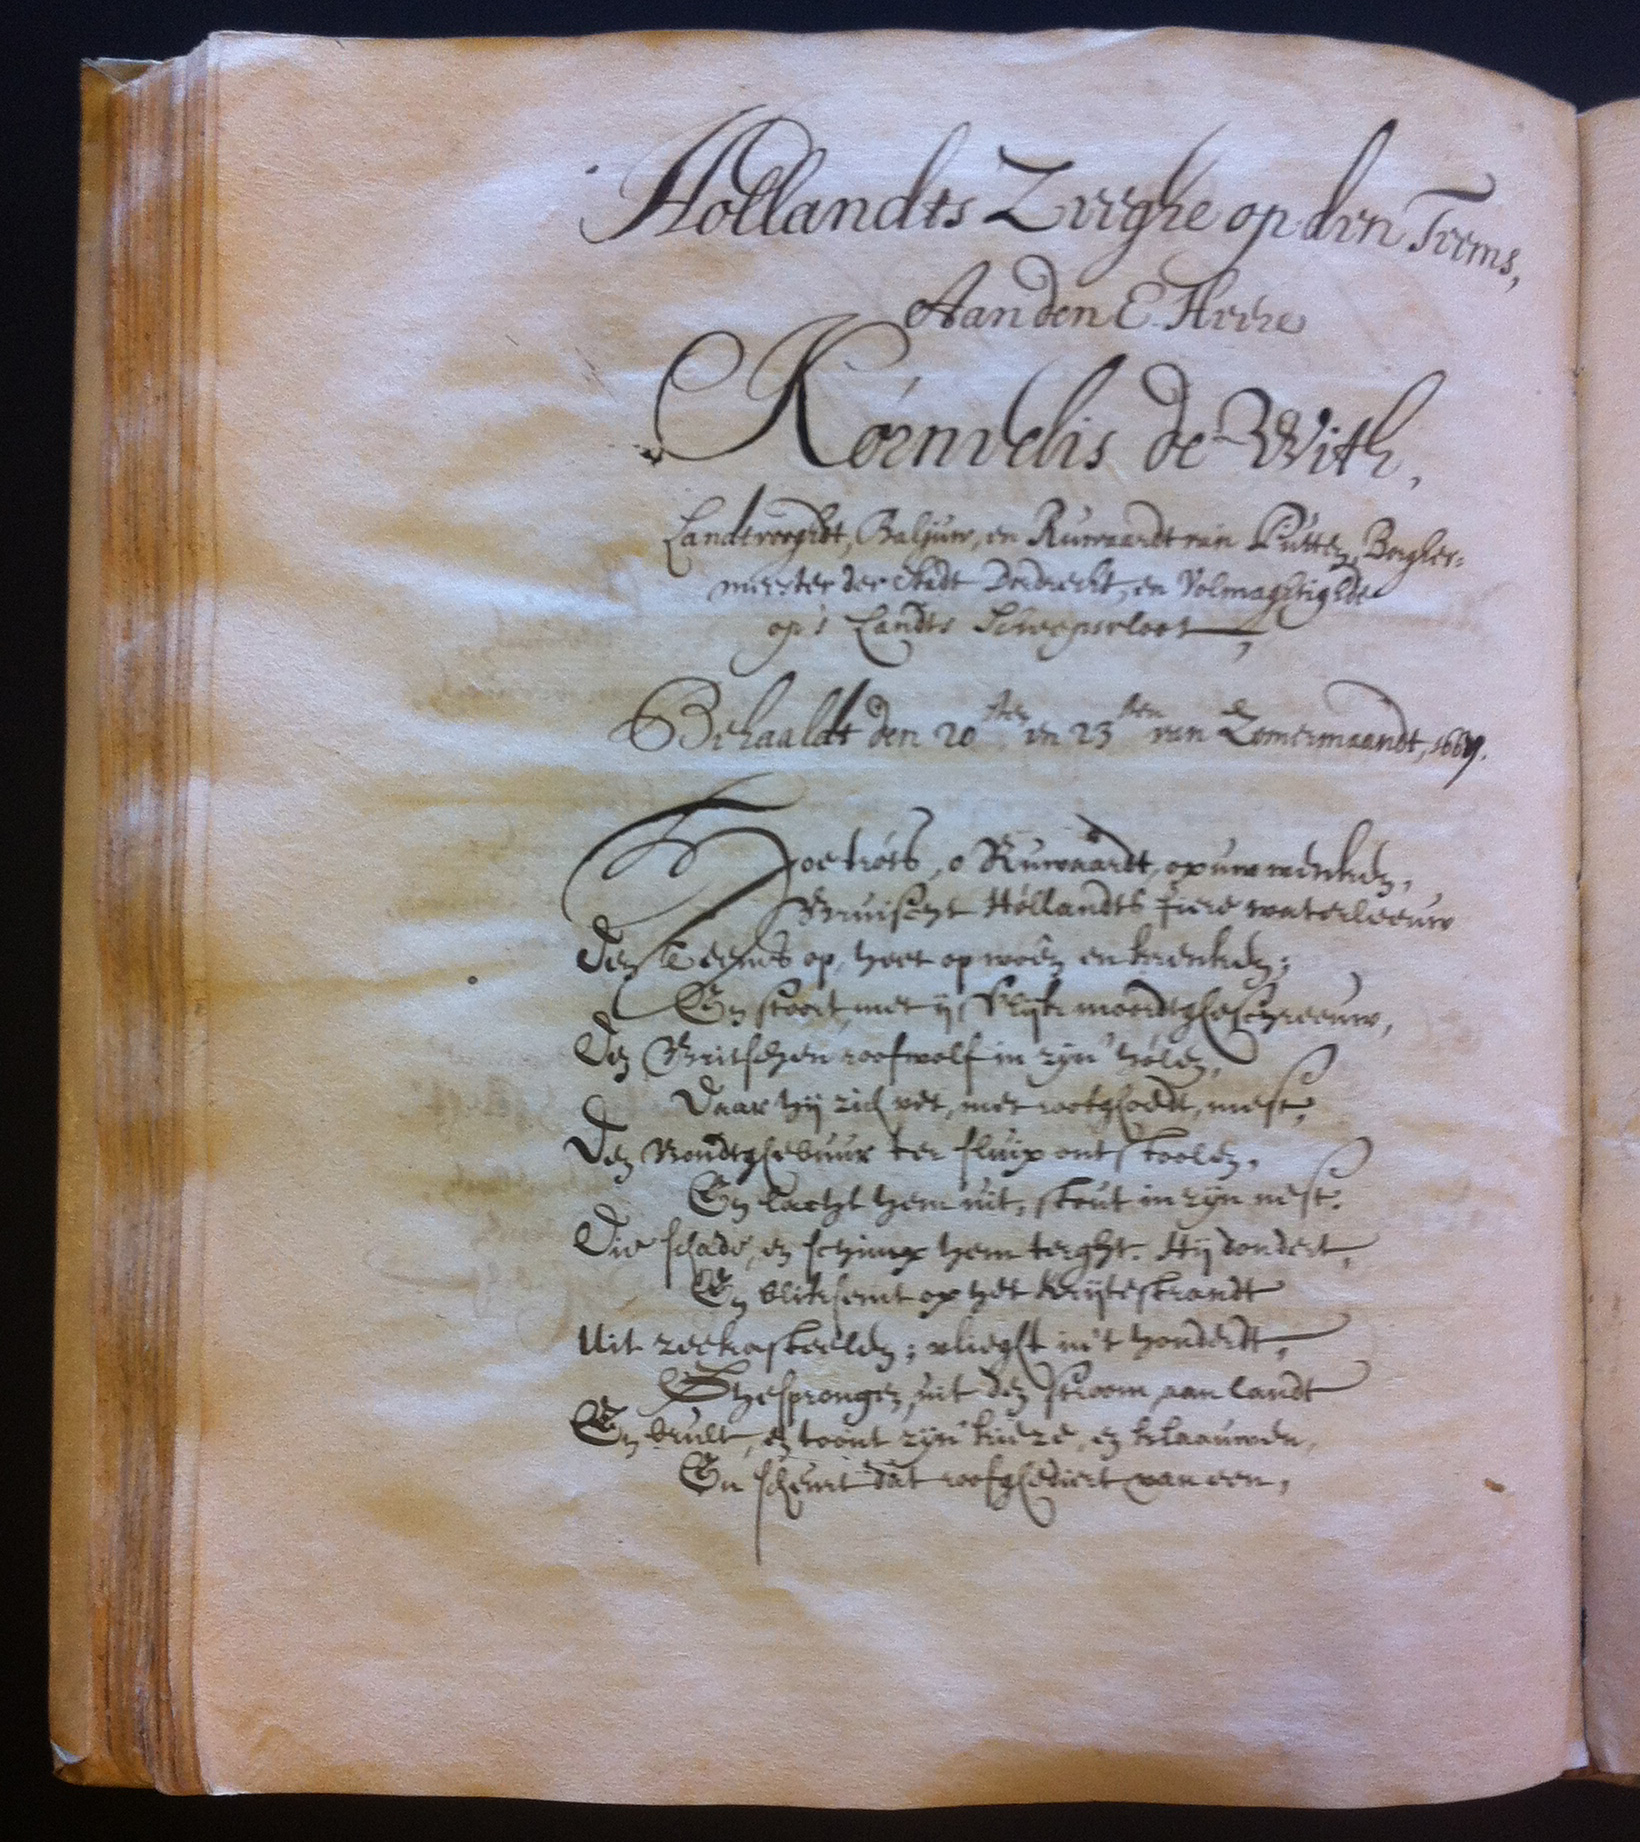 Hollandts Zeeghe op den Teems,
Aan den E. Heere
Kornelis de With,
Landtvooghdt, Baljuw, en Ruwaardt van Putten, Borgher=
meester der Stadt Dordrecht, en Volmaghtighde
op 's Landts Scheepsvloot,
Behaaldt den 20sten en 23sten van Zomermaandt, 1667.
Hoe trots, o Ruwaardt, op uw wenken,
Bruischt Hollandts fiere waterleeuw
Den Teems op, heet op woên en krenken;
En stoort, met ijslijk moordtgheschreeuw,
Den Britschen roofwolf in zyn' holen,
Daar hy zich vet, met roofghoedt, mest,
Den Bondtghebuur ter sluip ontstoolen,
En lacht hem uit, stout in zyn nest.
Die schade, en schimp hem terght. Hy dondert,
En bliksemt op het Krytestrandt
Uit zeekasteelen; vlieght in 't hondert,
Ghesprongen, uit den stroom, aan landt
En brult, en toont zyn' kieze, en klaauwen,
En scheurt dat roofghediert van een,